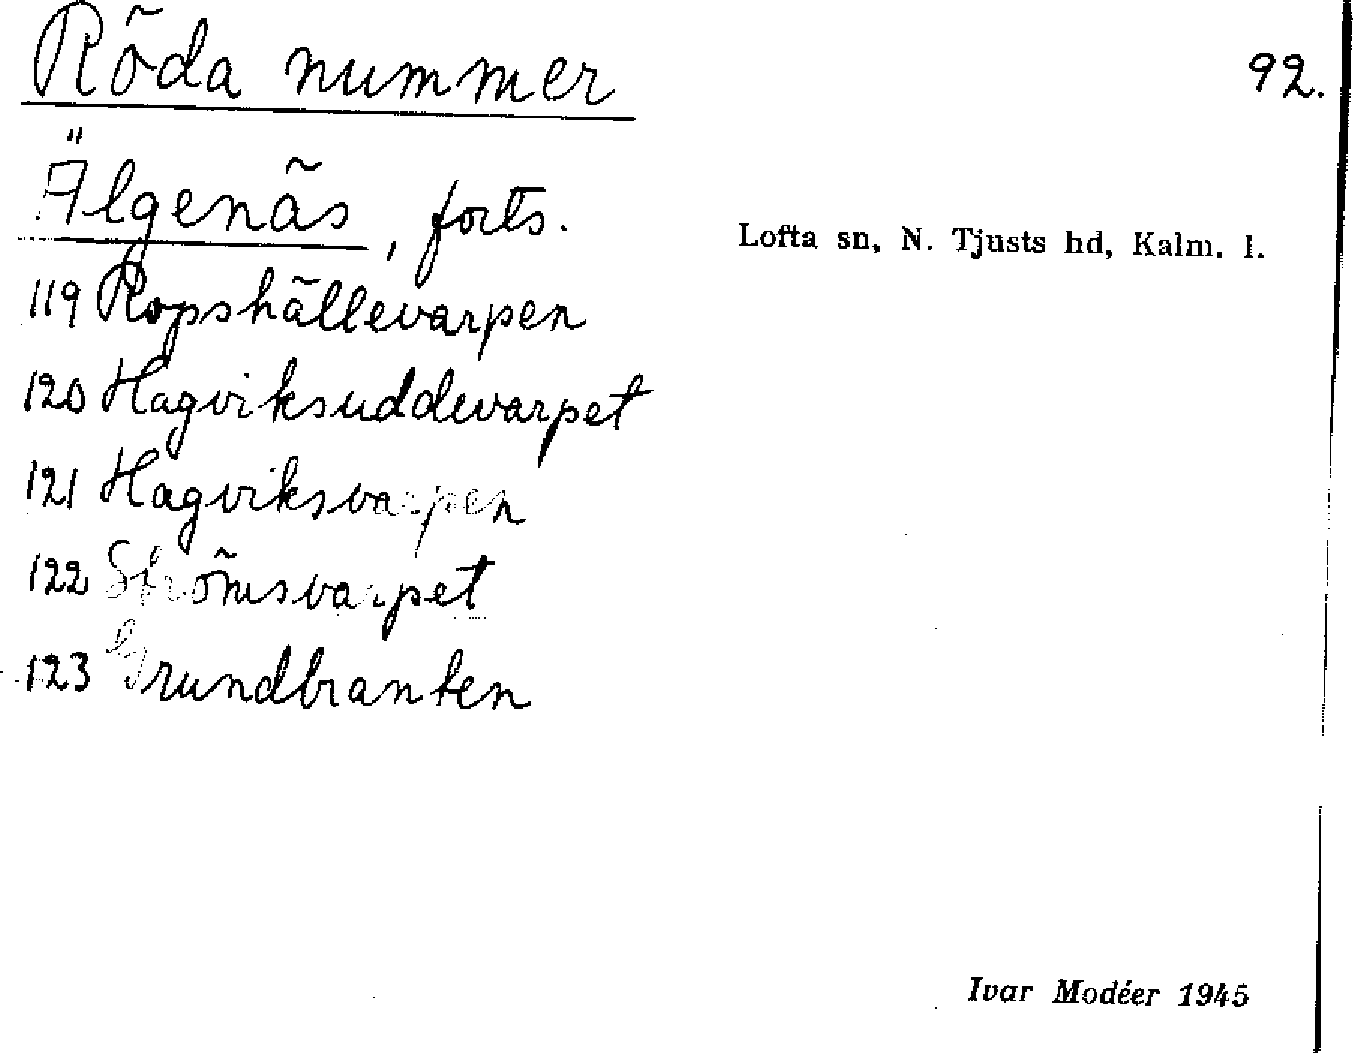 Röda nummer
92.
Älgenäs, forts.
Lofta sn, N. Tjusts hd, Kalm. l.
119 Ropshällevarpen
120 Hagviksuddevarpet
121 Hagviksvarpen
122 Strömsvarpet
123 Grundbranten
Ivar Modéer 1945